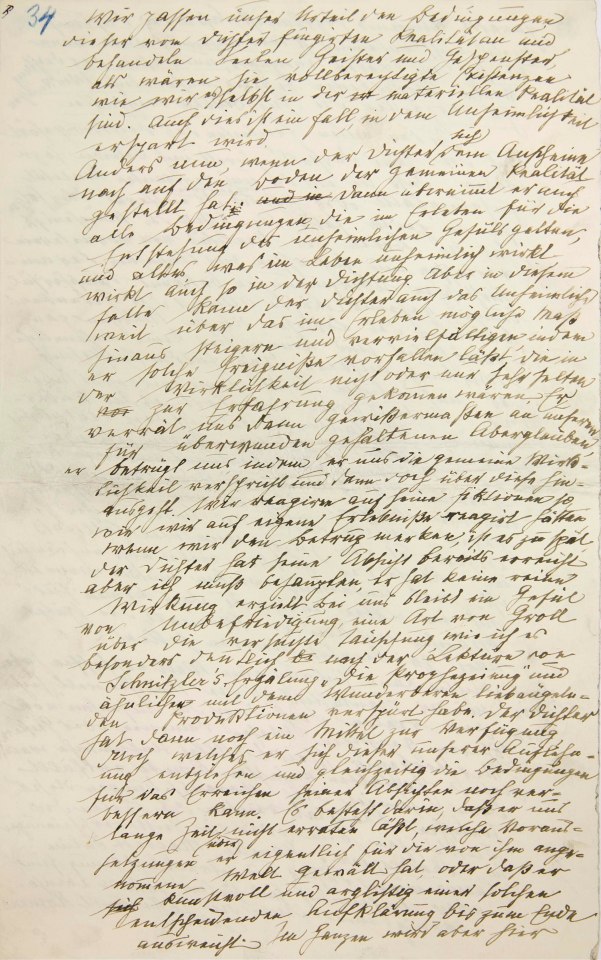 34
Wir passen unser Urteil den Bedingungen
dieser vom Dichter fingirten Realität an und
behandeln Seelen Geister und Gespenster,
als wären sie vollberechtigte Existenzen
wie wir es selbst in der materiellen Realität
sind. Auch dies ist ein Fall, in dem Unheimlichkeit
erspart wird.
Anders nun, wenn der Dichter sich dem Anscheine
nach auf den Boden der gemeinen Realität
gestellt hat. und in Dann übernimmt er auch
alle Bedingungen, die im Erleben für die
Entstehung des unheimlichen Gefüls gelten,
und alles was im Leben unheimlich wirkt
wirkt auch so in der Dichtung. Aber in diesem
Falle kann der Dichter auch das Unheimliche
weit über das im Erleben mögliche Maß
hinaus steigern und vervielfältigen indem
er solche Ereigniße vorfallen läßt, die in
der Wirklichkeit nicht oder nur sehr selten
vor zur Erfahrung gekommen wären. Er
verrät uns dann gewißermaßen an unseren
für überwunden gehaltenen Aberglauben,
er betrügt uns indem er uns die gemeine Wirk-
lichkeit verspricht und dann doch über diese hin-
ausgeht. Wir reagiren auf seine Fiktionen so
wie wir auf eigene Erlebniße reagirt hätten
wenn wir den Betrug merken, ist es zu spät,
der Dichter hat seine Absicht bereits erreicht
aber ich muß behaupten, Er hat keine reine
Wirkung erzielt. Bei uns bleibt ein Gefül
von Unbefriedigung, eine Art von Groll
über die versuchte Täuschung wie ich es
besonders deutlich nach der Lektüre von
Schnitzler's Erzälung „Die Prophezeiung" und
änlichen mit dem Wunderbaren liebäugeln-
den Produktionen verspürt habe. Der Dichter
hat dann noch ein Mittel zur Verfügung
durch welches er sich dieser unserer Aufleh-
nung entziehen und gleichzeitig die Bedingungen
für das Erreichen seiner Absichten noch ver-
bessern kann. Es besteht darin, daß er uns
lange Zeit nicht erraten läßt, welche Voraus-
setzungen er eigentlich für die von ihm ange-
nommene Welt gewält hat, oder daß er
kunstvoll und arglistig einer solchen
entscheidenden Aufklärung bis zum Ende
ausweicht. Im Ganzen wird aber hier